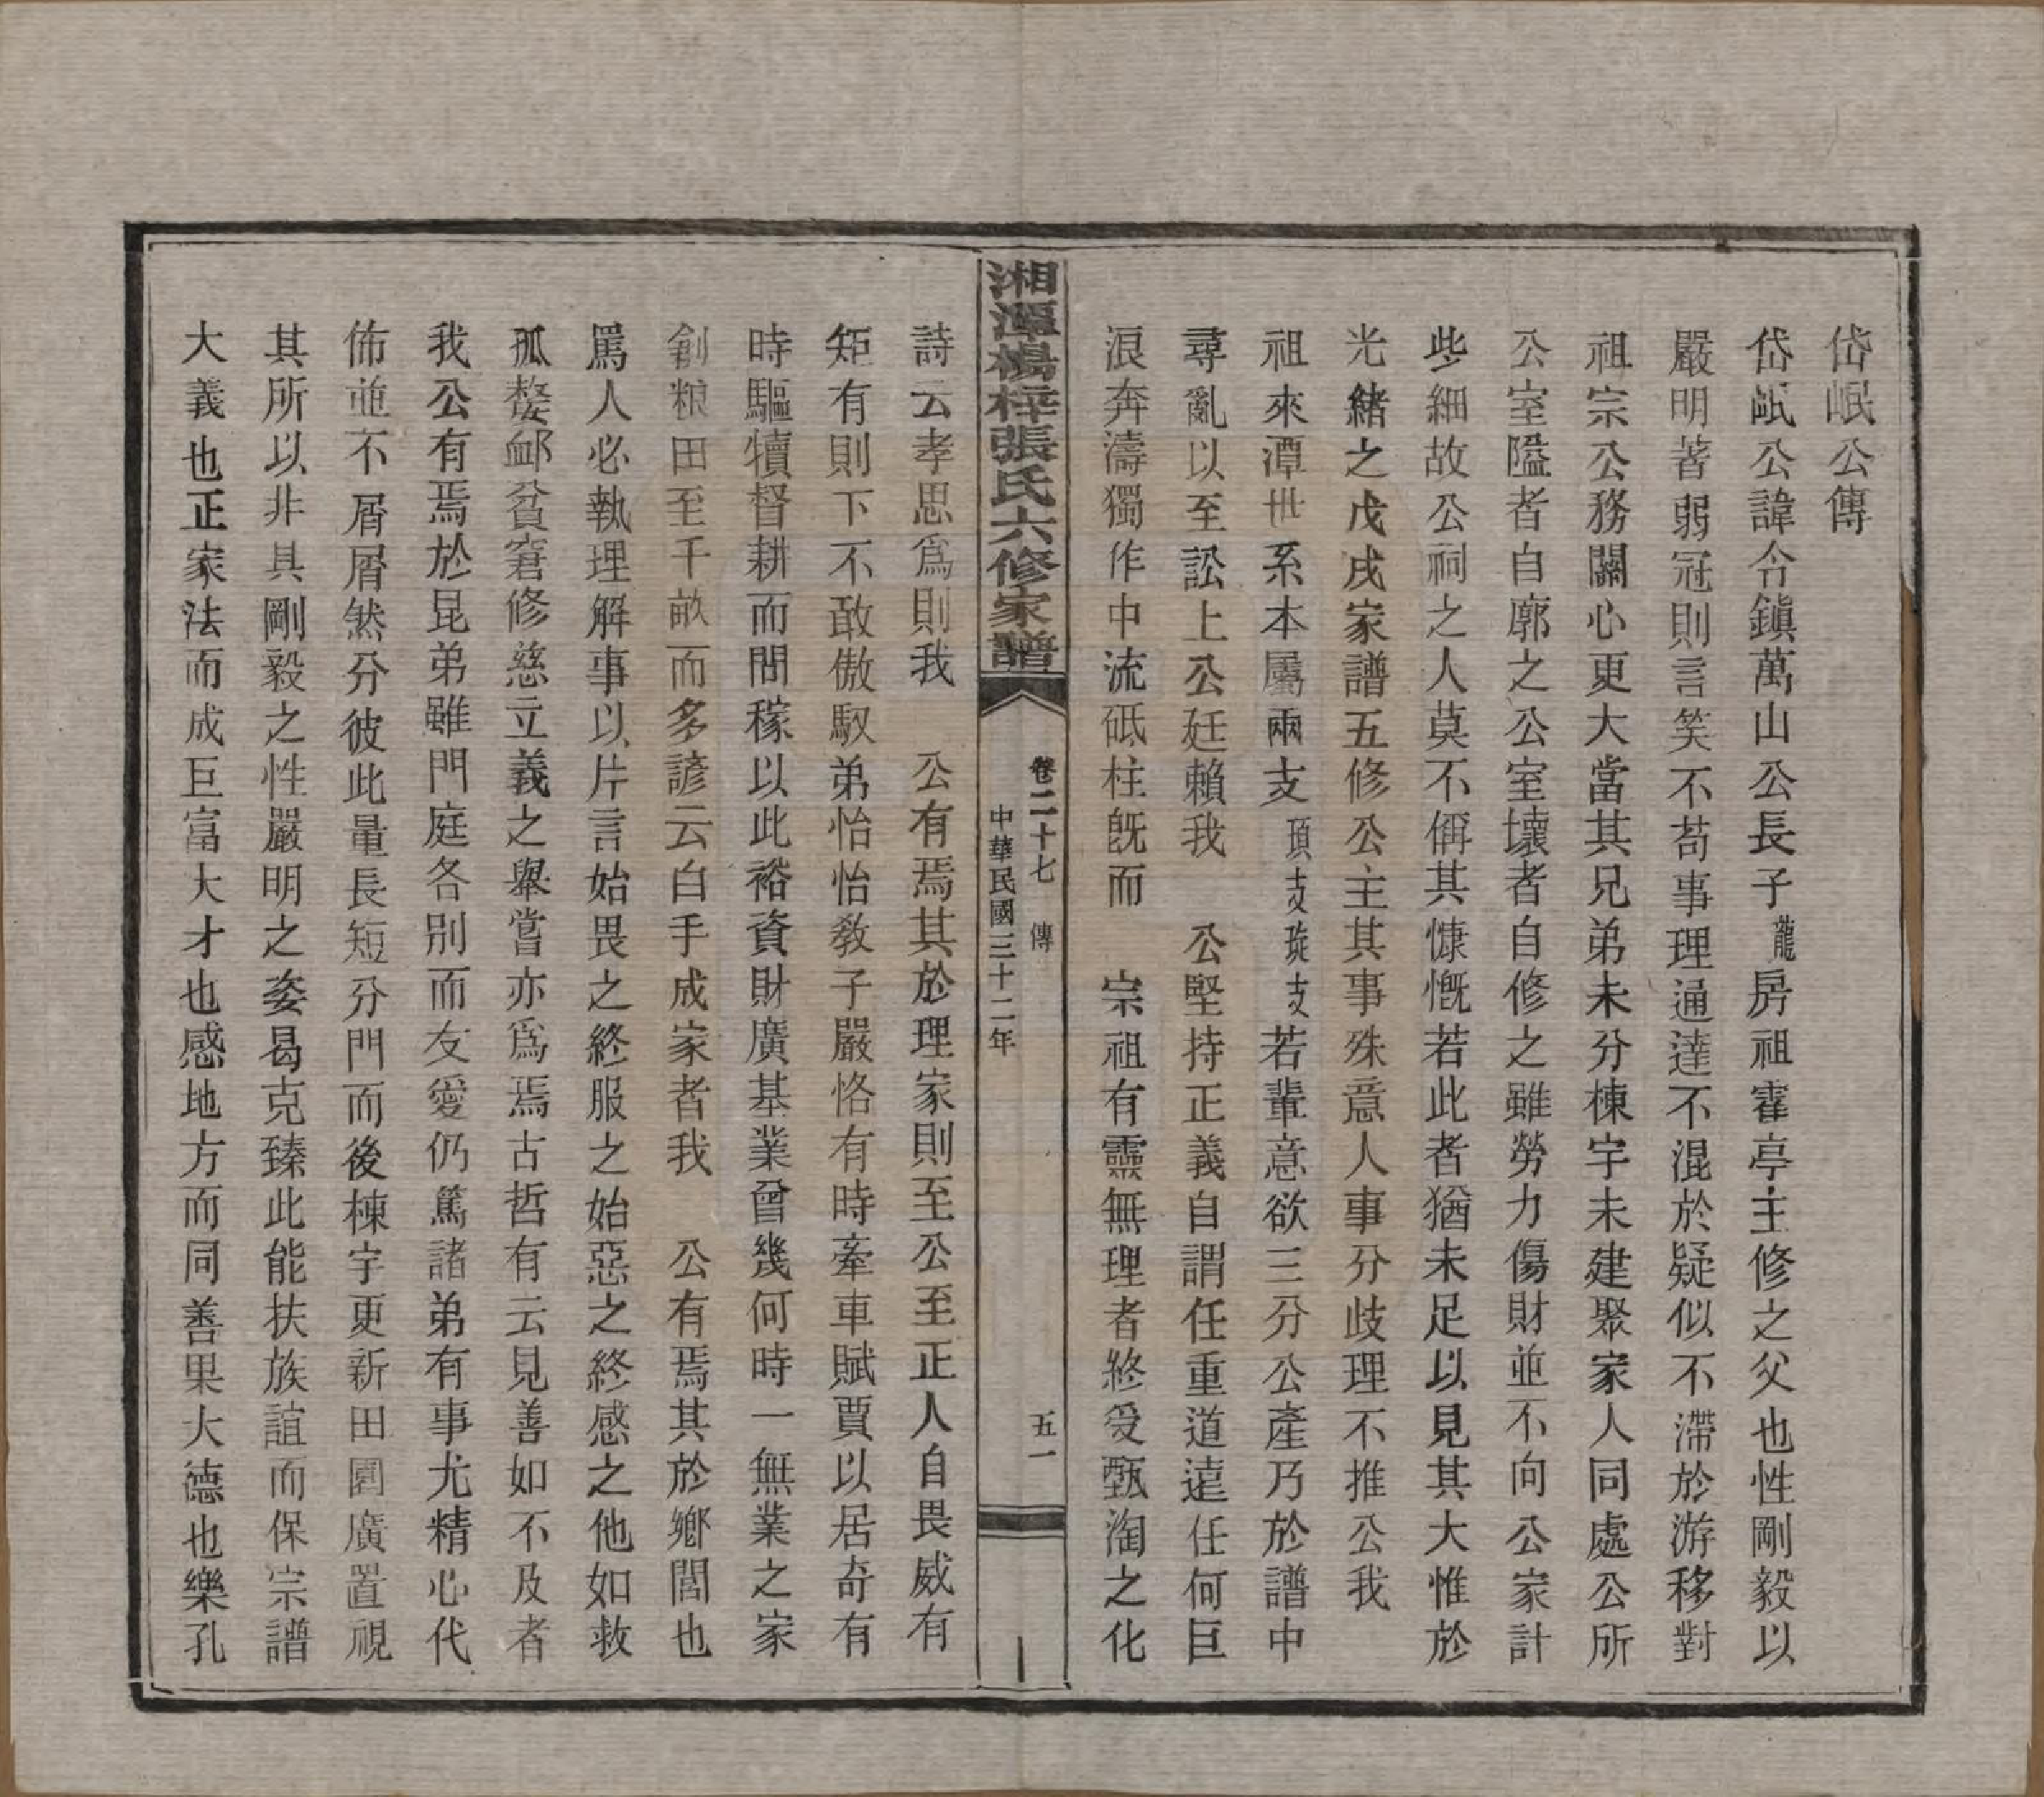 岱岷公傳
岱岷公諱令鎮萬山公長子龍房祖霍亭主修之父也性剛毅以
嚴明著弱冠則言笑不苟事理通達不混於疑似不滯於游移對
祖宗公務關心更大當其兄弟未分棟宇未建聚家人同處公所
公室隘者自廓之公室壞者自修之雖勞力傷財並不向公家計
些細故公祠之人莫不偁其慷慨若此者猶未足以見其大惟於
光緒之戊戌家譜五修公主其事殊意人事分歧理不推公我
祖來潭世系本屬兩支頂支琁支若輩意欲三分公產乃於譜中
尋亂以至訟上公廷賴我　公堅持正義自謂任重道遠任何巨
浪奔濤獨作中流砥柱旣而　宗祖有靈無理者終受甄淘之化
湘潭楊梓張氏六修家譜
卷二十七　傳　五一
中華民國三十二年
詩云孝思爲則我　公有焉其於理家則至公至正人自畏威有
矩有則下不敢傲馭弟怡怡敎子嚴恪有時牽車賦賈以居奇有
時驅犢督耕而問稼以此裕資財廣基業曾幾何時一無業之家
創粮田至千畝而多諺云白手成家者我　公有焉其於鄉閭也
罵人必執理解事以片言始畏之終服之始惡之終感之他如救
孤嫠衈貧窘修慈立義之舉嘗亦爲焉古哲有云見善如不及者
我公有焉於昆弟雖門庭各別而友愛仍篤諸弟有事尤精心代
佈並不屑屑然分彼此量長短分門而後棟宇更新田園廣置視
其所以非具剛毅之性嚴明之姿曷克臻此能扶族誼而保宗譜
大義也正家法而成巨富大才也感地方而同善果大德也樂孔